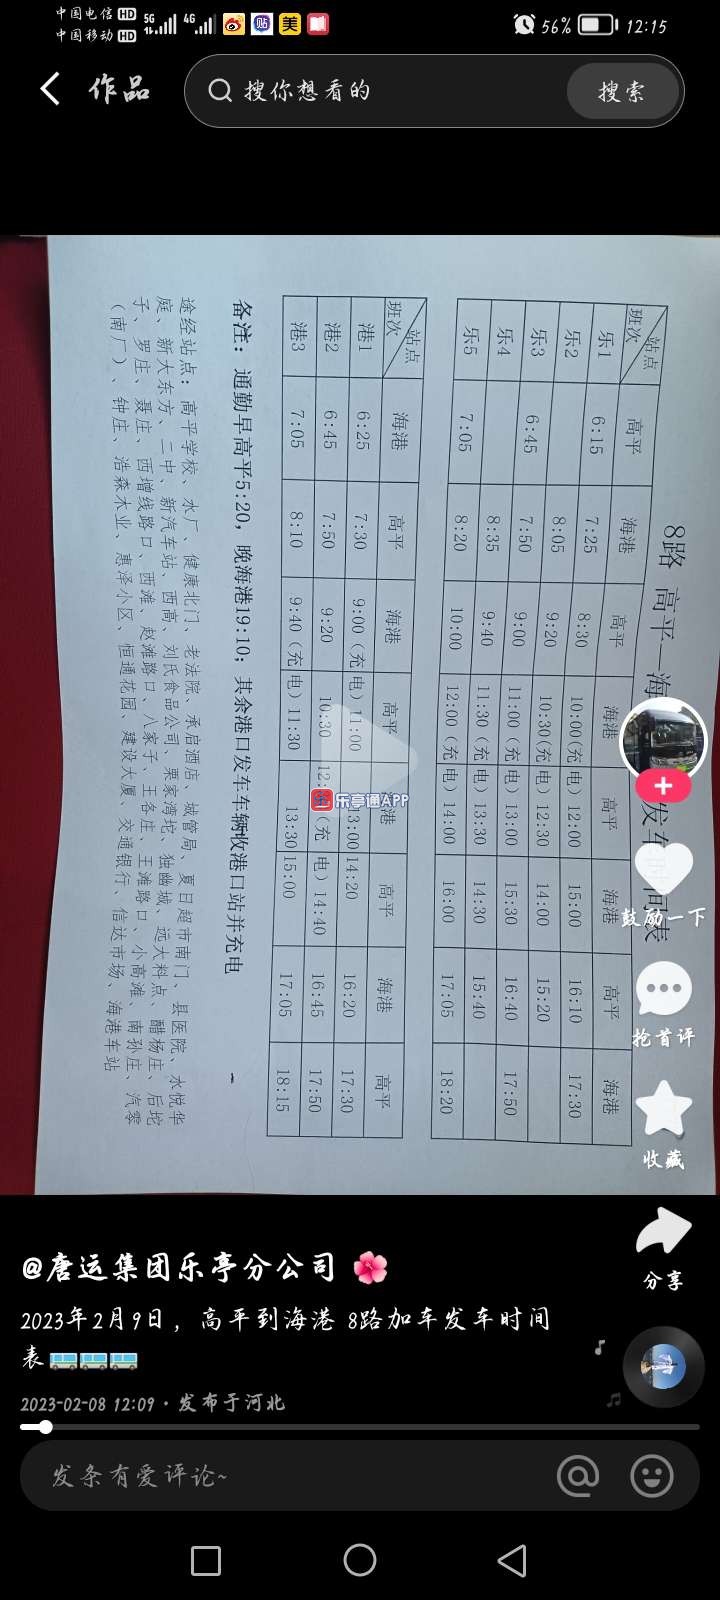 中国电信 HD 5G 4G
中国移动 HD
56% 12:15
作品
搜你想看的
搜索
8路 高平—海 发车时间表
站点 班次 高平 海港 高平 海港 高平 海港 高平 海港
乐1 6:15 7:25 8:30 10:00(充电) 12:00 15:00 16:10 17:30
乐2 8:05 9:20 10:30(充电) 12:30 14:00 15:20
乐3 6:45 7:50 9:00 11:00（充电）13:00 15:30 16:40 17:50
乐4 8:35 9:40 11:30（充电）13:30 14:30 15:40
乐5 7:05 8:20 10:00 12:00（充电）14:00 16:00 17:05 18:20
站点 班次 海港 高平 海港 高平 港 高平 海港 高平
港1 6:25 7:30 9:00（充电）11:00 13:00 14:20 16:20 17:30
港2 6:45 7:50 9:20 10:30 （充电）14:40 16:45 17:50
港3 7:05 8:10 9:40（充电）11:30 13:30 15:00 17:05 18:15
备注：通勤早高平5:20，晚海港19:10；其余港口发车车辆收港口站并充电
途经站点：高平学校、水厂、健康北门、老法院、承启酒店、城管局、夏日超市南门、县医院、水悦华
庭、新大东方、二中、新汽车站、西高、刘氏食品公司、栗家湾坨、独幽城、远大料点、醋杨庄、后坨
子、罗庄、聂庄、西增线路口、西滩、赵滩路口、八家子、王各庄、王滩路口、小高滩、南孙庄、汽零
（南厂）、钟庄、浩森木业、惠泽小区、恒通花园、建设大厦、交通银行、信达市场、海港车站
乐亭通APP
鼓励一下
抢首评
收藏
分享
@唐运集团乐亭分公司
2023年2月9日，高平到海港 8路加车发车时间
表
2023-02-08 12:09 · 发布于河北
发条有爱评论~